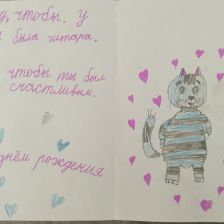 у, чтобы. у
была гитара.
чтобы ты был
счастливым.
днём рождения